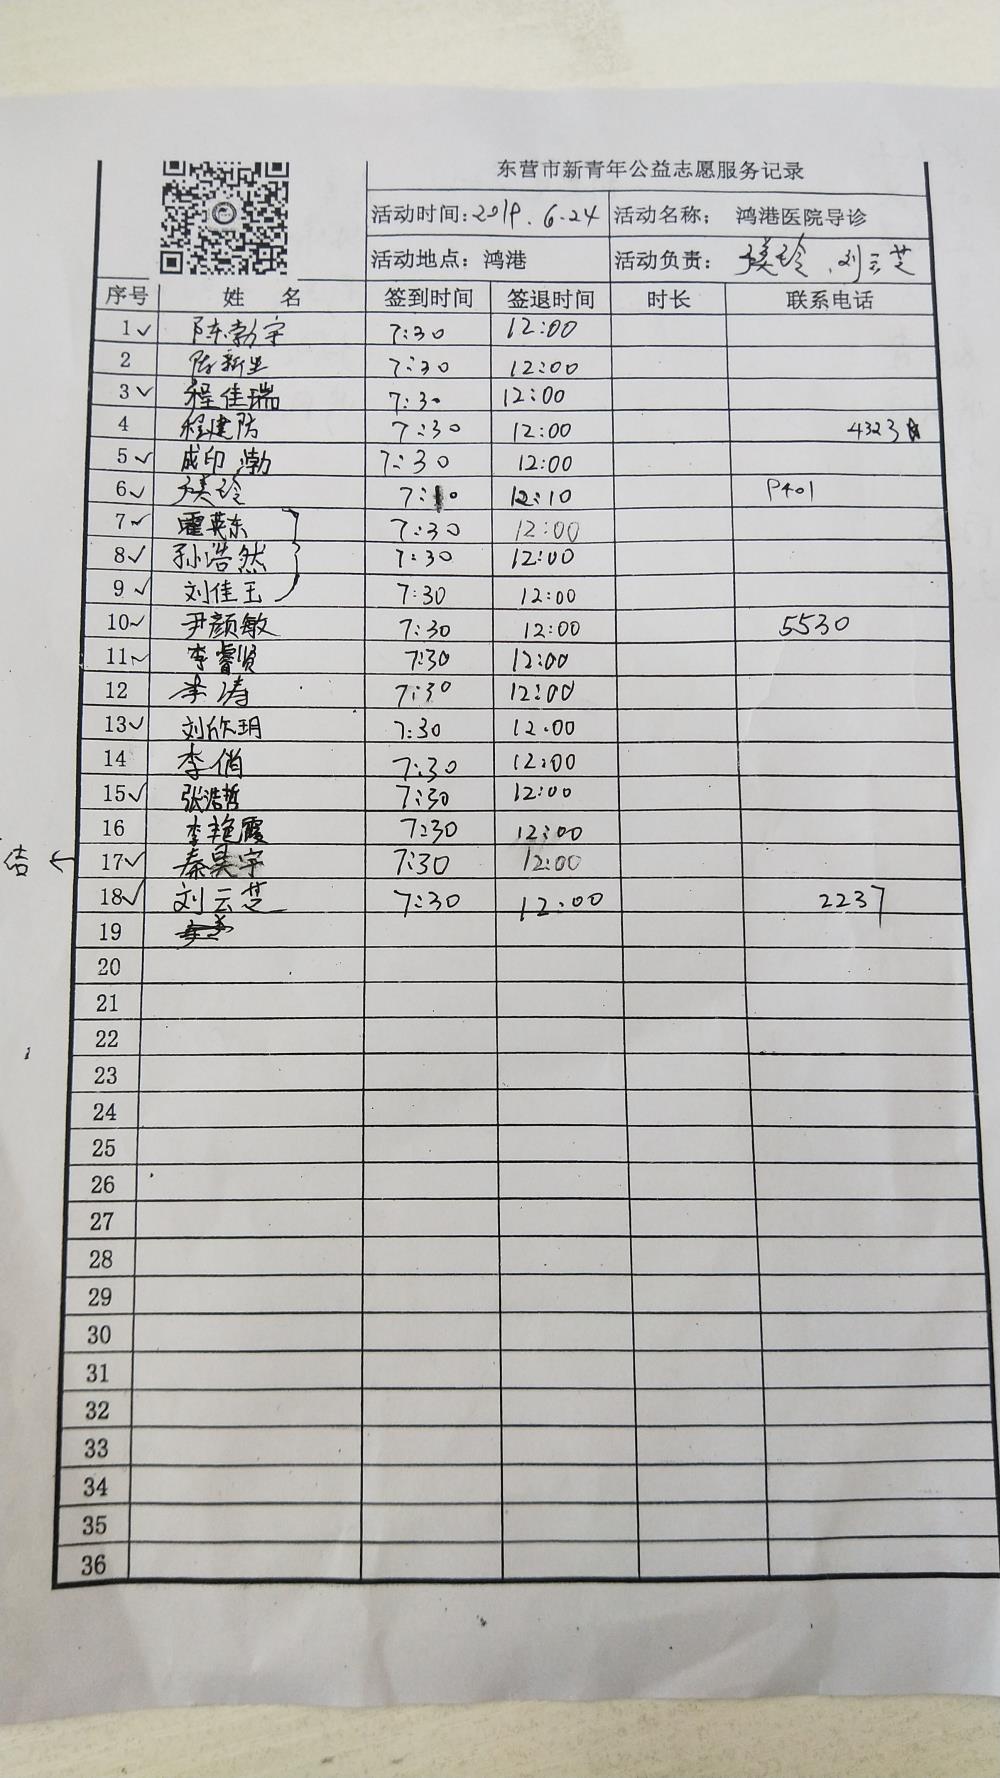 东营市新青年公益志愿服务记录
活动时间: 2019.6.24 活动名称: 鸿港医院导诊
活动地点: 鸿港 活动负责: 刘云芝
序号 姓 名 签到时间 签退时间 时长 联系电话
1✓ 陈勃宇 7:30 12:00
2 陈新生 7:30 12:00
3✓ 程佳瑞 7:30 12:00
4 程建防 7:30 12:00 4323
5✓ 成印渤 7:30 12:00
6✓ 12:10 P401
7✓ 霍英东 7:30 12:00
8✓ 孙浩然 7:30 12:00
9✓ 刘佳玉 7:30 12:00
10✓ 尹颜敏 7:30 12:00 5530
11✓ 李睿贤 7:30 12:00
12 李涛 7:30 12:00
13✓ 刘欣玥 7:30 12:00
14 李俏 7:30 12:00
15✓ 张浩哲 7:30 12:00
16 李艳霞 7:30 12:00
17✓ 秦昊宇 7:30 12:00
18✓ 刘云芝 7:30 12:00 2237
19
20
21
22
23
24
25
26
27
28
29
30
31
32
33
34
35
36